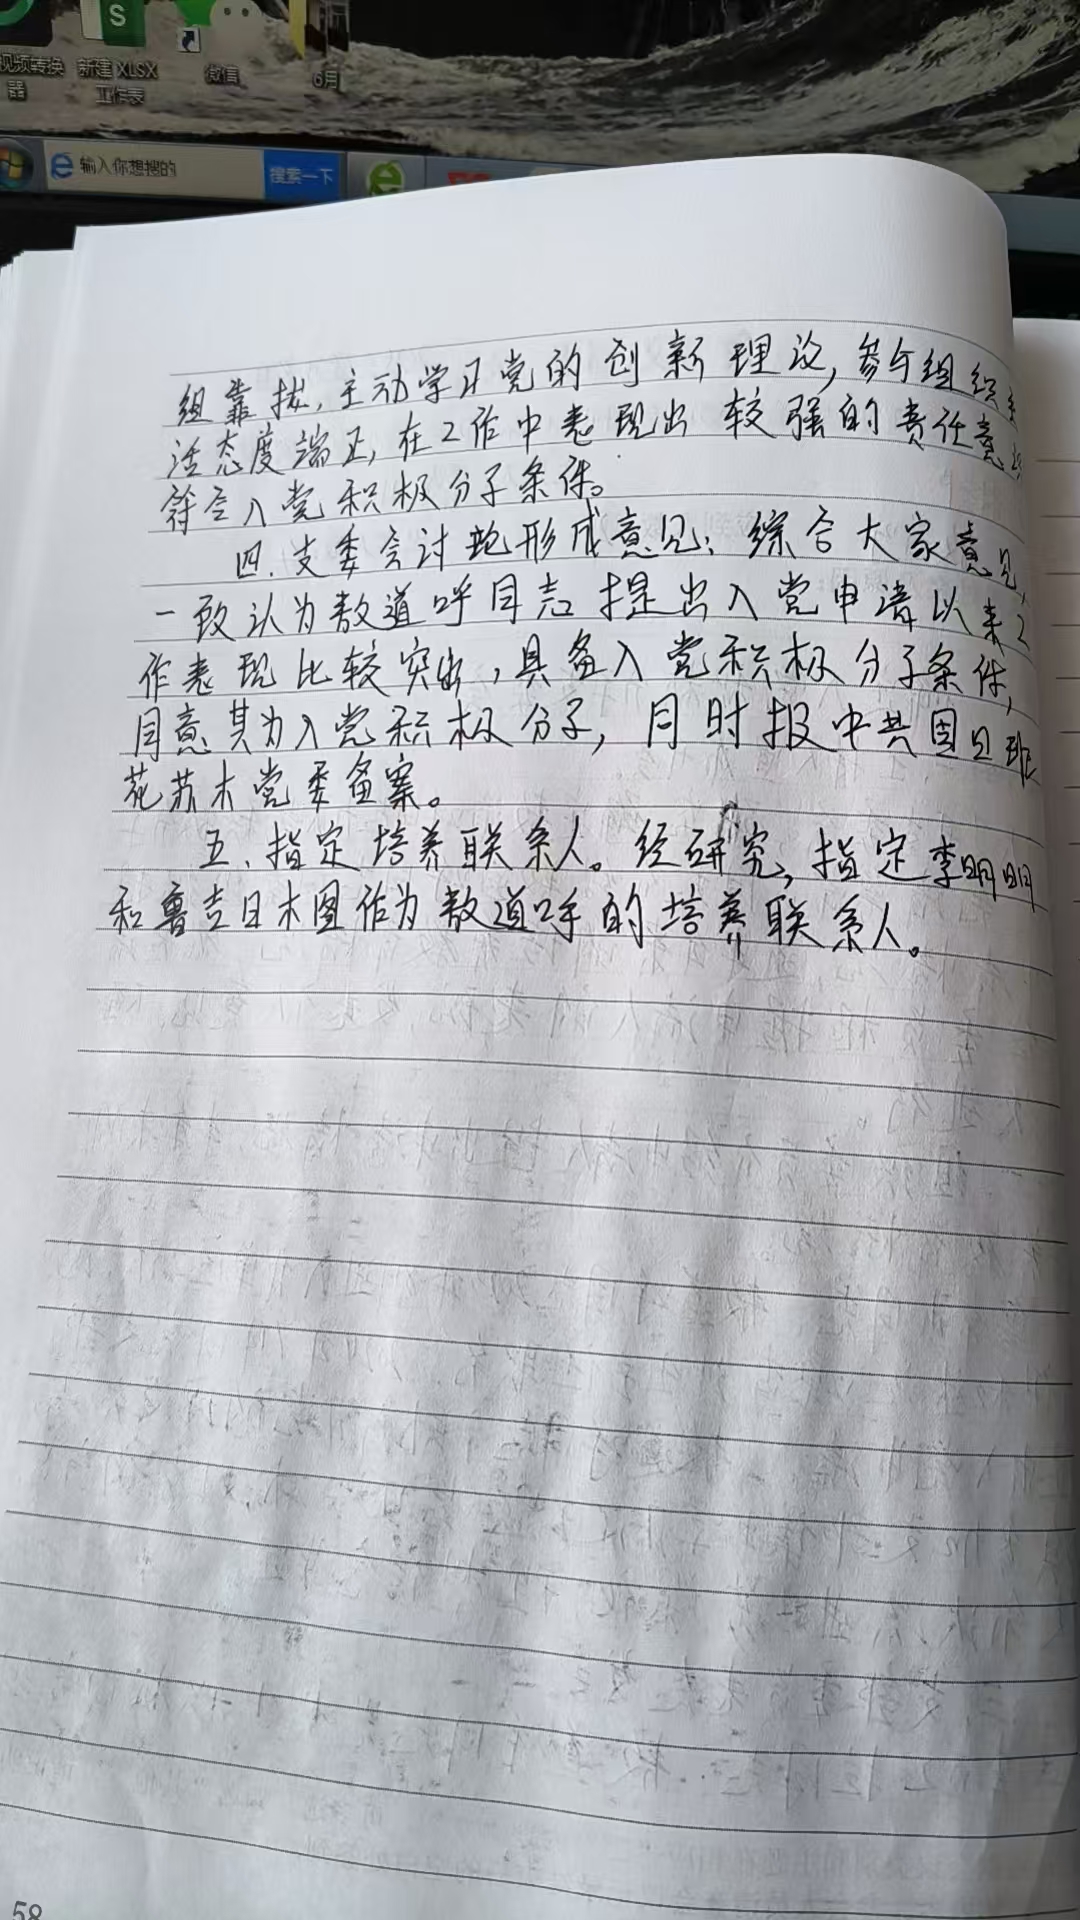 视频转换器
新建 XLSX 工作表
微信
6月
输入你想搜的
搜索一下
组靠拔,主动学习党的创新理论,参与组织
活态度端正,在工作中表现出较强的责任意
符合入党积极分子条件。
四、支委会讨论形成意见:综合大家意见,
一致认为敖道呼同志提出入党申请以来工
作表现比较突出,具备入党积极分子条件,
同意其为入党积极分子,同时报中共固日班
花苏木党委备案。
五、指定培养联系人。经研究,指定李明明
和鲁吉日木图作为敖道呼的培养联系人。
58